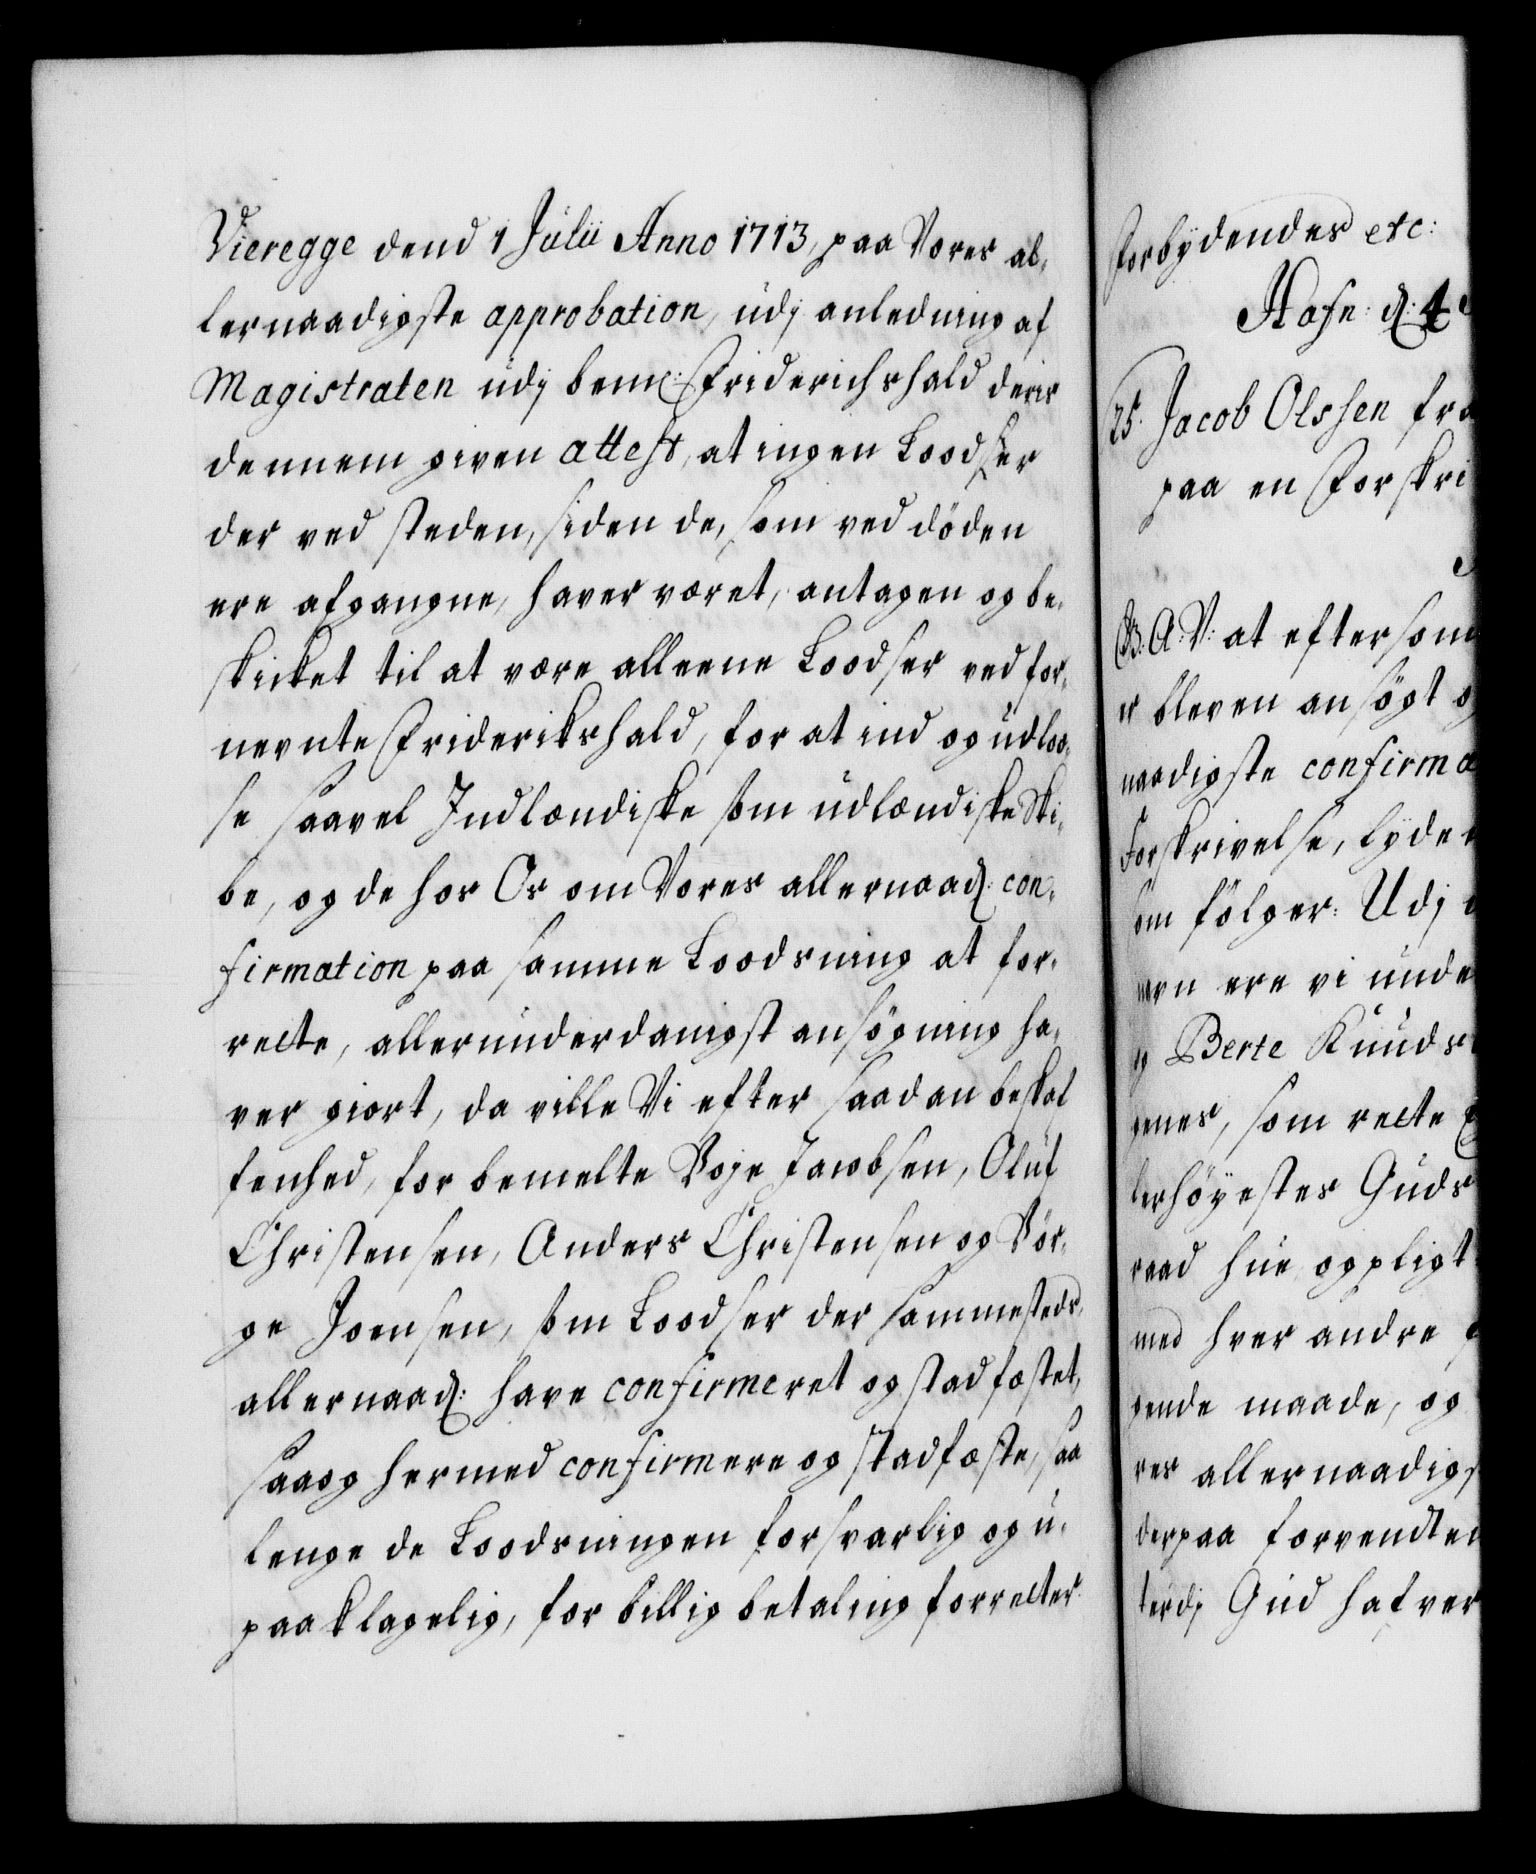 Vieregge dend 1 Julii Anno 1713, paa Vores al-
lernaadigste approbation, udj anledning af
Magistraten udj bem: Friderichshald deris
dennem given attest, at ingen Loodser
der ved steden, siden de, som ved döden
ere afgangne, haver været, antagen og be-
skicket til at være alleene Loodser ved for-
nevnte Friderikshald, for at ind og udloo-
se saavel Indlændiske som udlændiske Ski-
be, og de hos Os om Vores allernaad: con-
firmation paa samme Loodsning at for-
rette, allerunderdanigst ansögning ha-
ver giort, da ville Vi efter saadan beskaf
fenhed, forbemelte Boje Jacobsen, Oluf
Christensen, Anders Christensen og Bör-
ge Joensen, som Loodser der sammesteds,
allernaad: have confirmeret og stadfæstet,
saa og hermed confirmere og stadfæste, saa
lenge de Loodsningen forsvarlig og u-
paaklagelig, for billig betaling forretter
Forbydendes etc:
Hafn: d: 4
25. Jacob Olssen fra
paa en Forskri
G. A. V: at eftersom
er bleven ansögt o
naadigste confirma
Forskrivelse, lyde
som fölger: Udj
navn ere vi unde
og Berte Knuds
genes, som rette
lerhöyestes Guds
raad hue og pligt
med hver andre
gende maade, og
res allernaadigs
derpaa forvendten
terdj Gud hafver